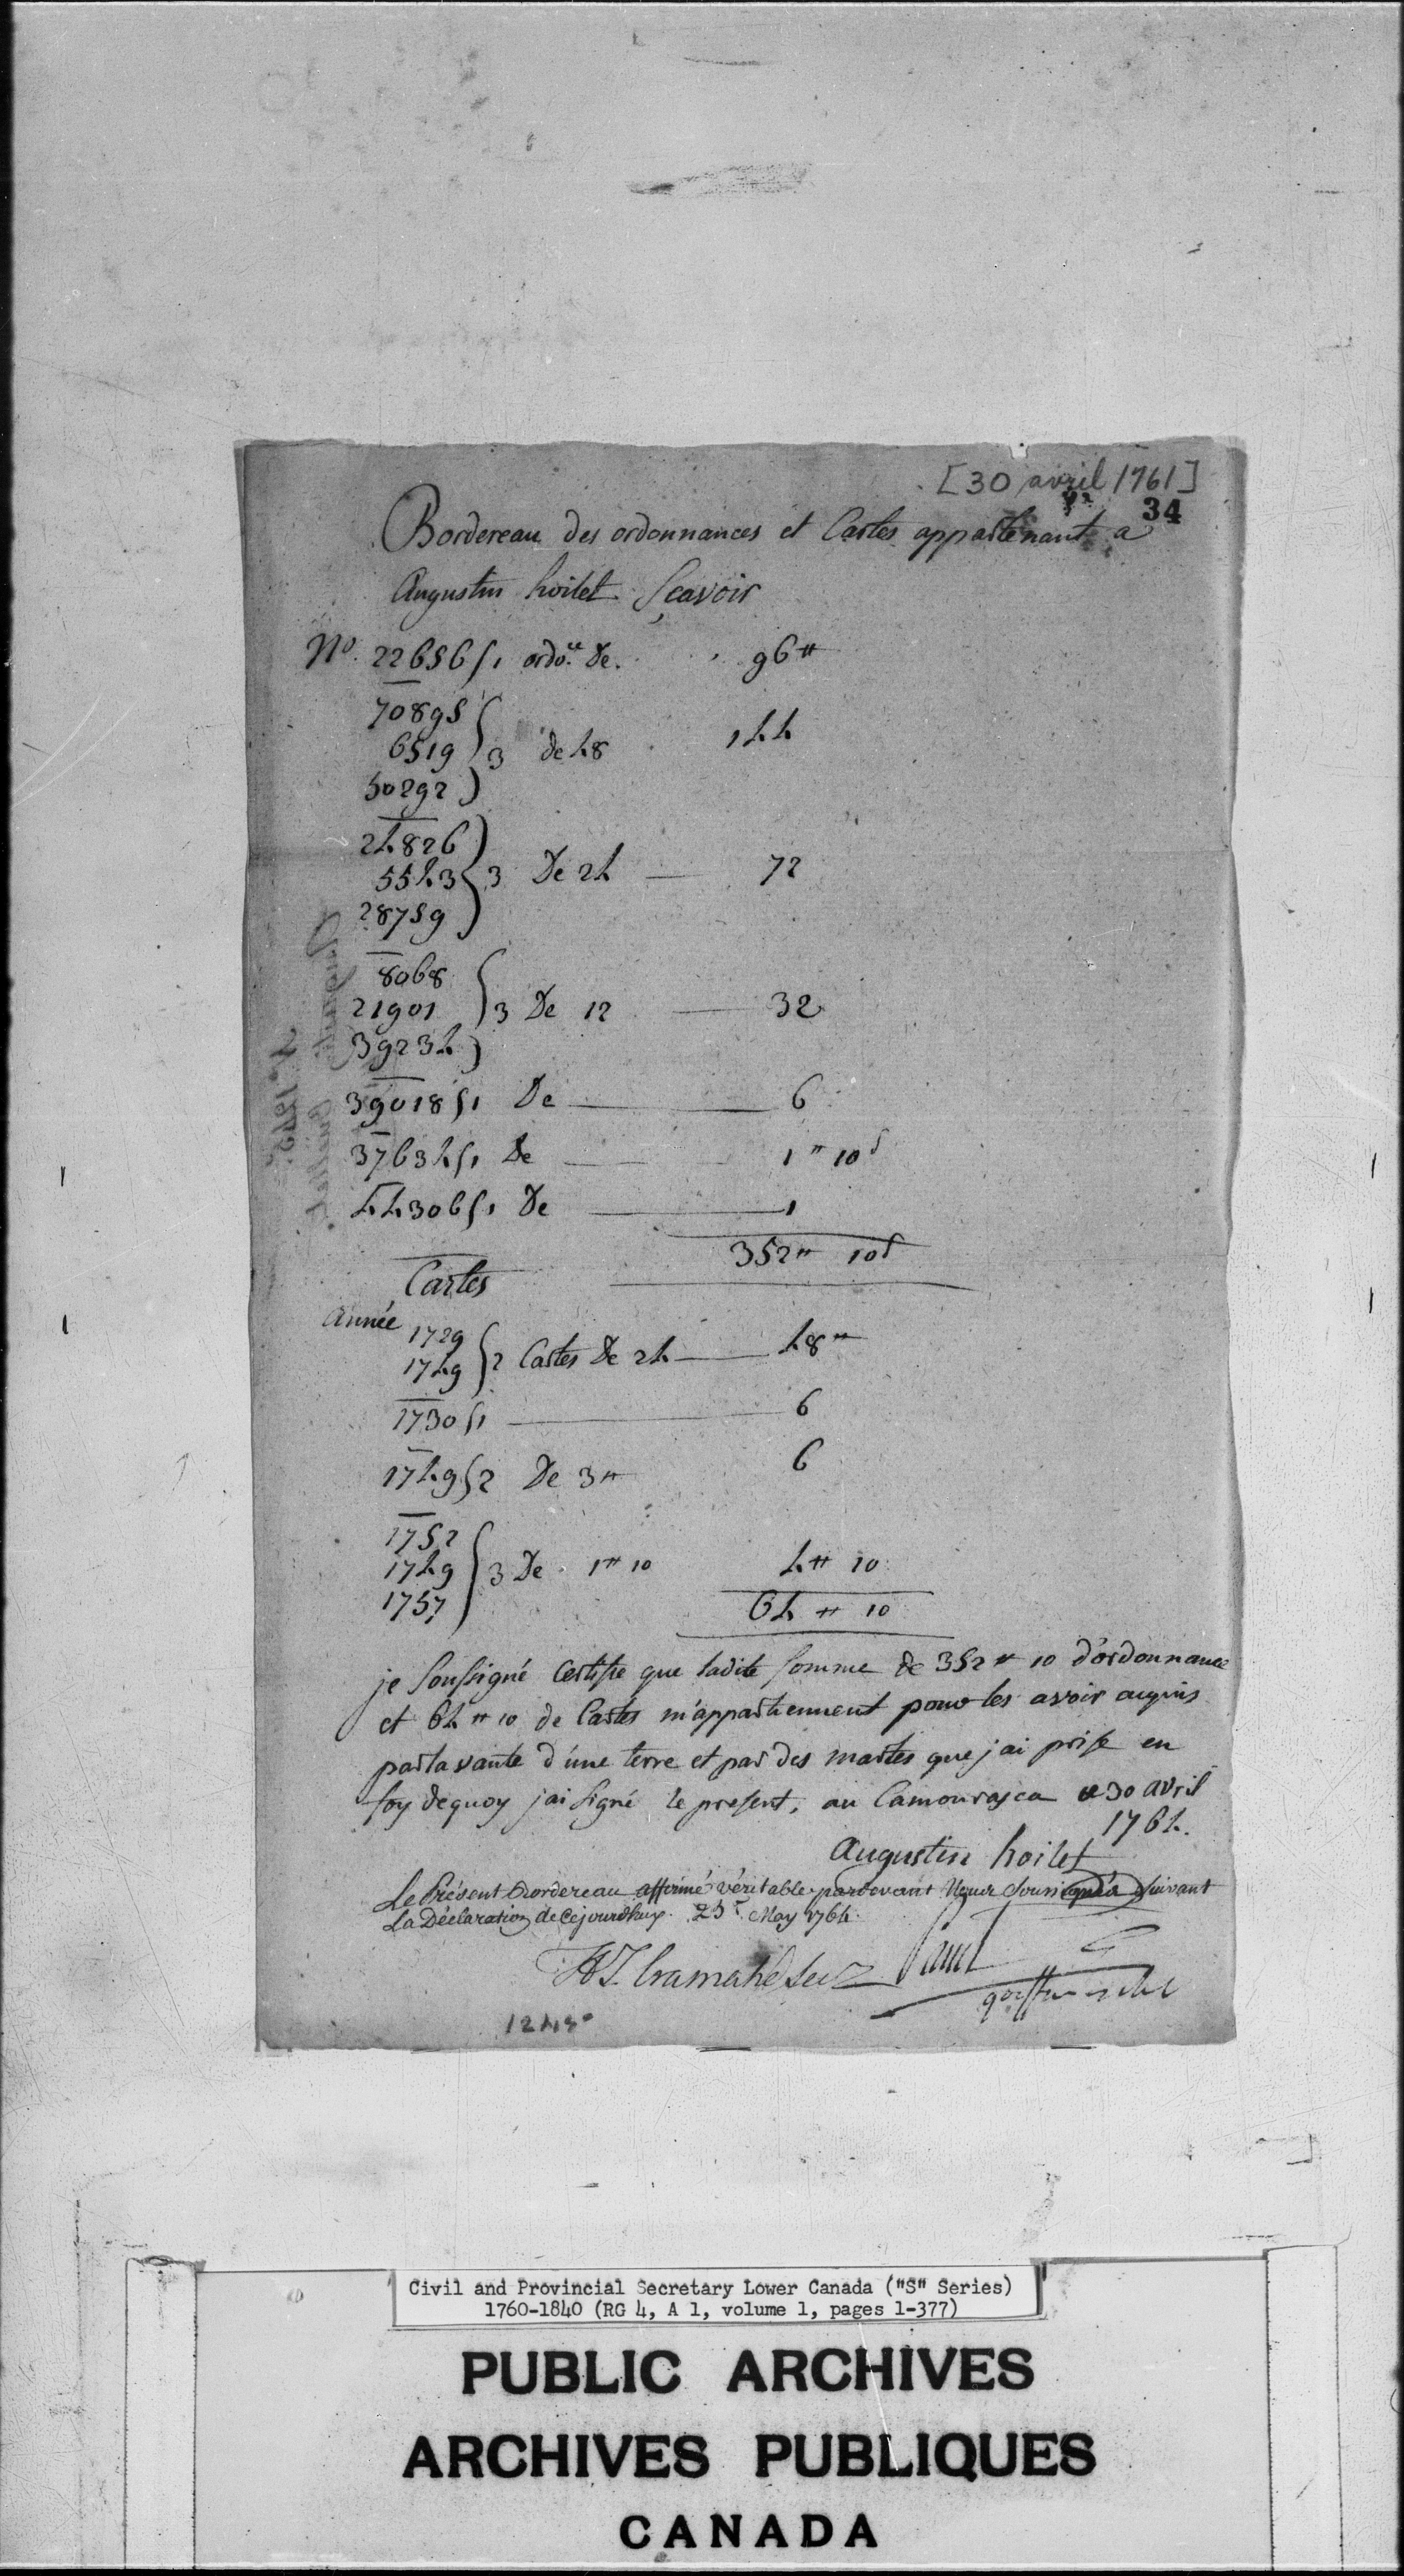 [30 avril 1761]
34
Bordereau des ordonnances et Cartes appartenant a
Augustin hoilet Sçavoir
No. 22656 { 1 ordo.ce De. 96 ₶
70895
6519 } 3 de 48 144
50292
24826
5543 } 3 De 24 72
28759
8068
21901 } 3 De 12 32
39234
39018 { 1 De 6
37634 { 1 De 1 ₶ 10 s
44306 { 1 De 1
352 ₶ 10 s
Cartes
année
1729
1749 } 2 Cartes De 24 48 ₶
1730 { 1 6
1749 { 2 De 3 ₶ 6
1752
1749 } 3 De 1 ₶ 10 4 ₶ 10
1757
64 ₶ 10
je Soussigné Certifie que ladite Somme de 352 ₶ 10 d'ordonnance
et 64 ₶ 10 de Cartes m'appartiennent pour les avoir acquis
par la vante d'une terre et par des martes que j'ai prise en
foy dequoy j'ai Signé le present, au Camourasca a 30 avril
1764.
Augustin hoilet
Le Présent Bordereau affirmé véritable pardevant Nous Soussignés Suivant
La Déclaration de Cejourdhuy 25 May 1764
HT Cramahé
Civil and Provincial Secretary Lower Canada ("S" Series)
1760-1840 (RG 4, A 1, volume 1, pages 1-377)
PUBLIC ARCHIVES
ARCHIVES PUBLIQUES
CANADA